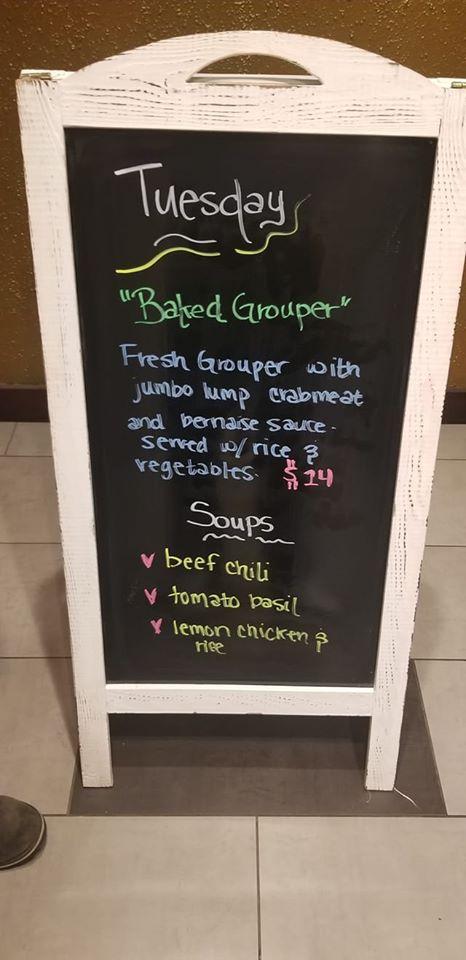 Tuesday
"Baked Grouper"
Fresh Grouper with
jumbo lump crabmeat
and bernaise sauce.
served w/ rice &
vegetables. $14
Soups
beef chili
tomato basil
lemon chicken &
rice